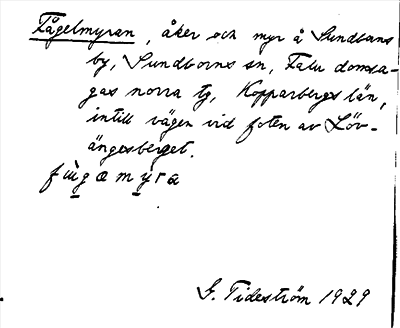 Fågelmyran, åker och myr å Sundborns
by, Sundborns sn, Falu domsa-
gas norra tg, Kopparbergs län,
intill vägen vid foten av Löv-
ängsberget.
fùgəmyra
G. Tideström 1929